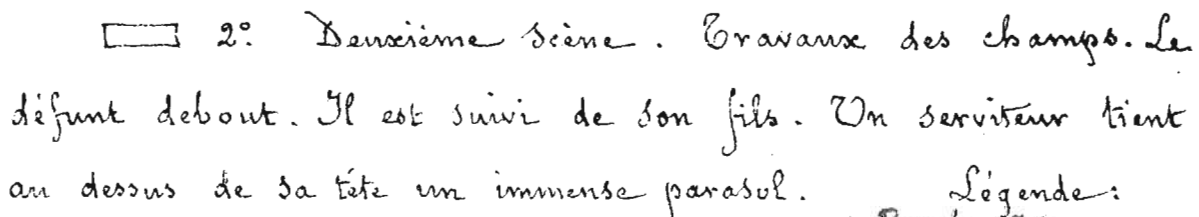 2° Deuxième Scène. Travaux des champs. Le
défunt debout. Il est suivi de son fils. Un serviteur tient
au dessus de sa tête un immense parasol. Légende: